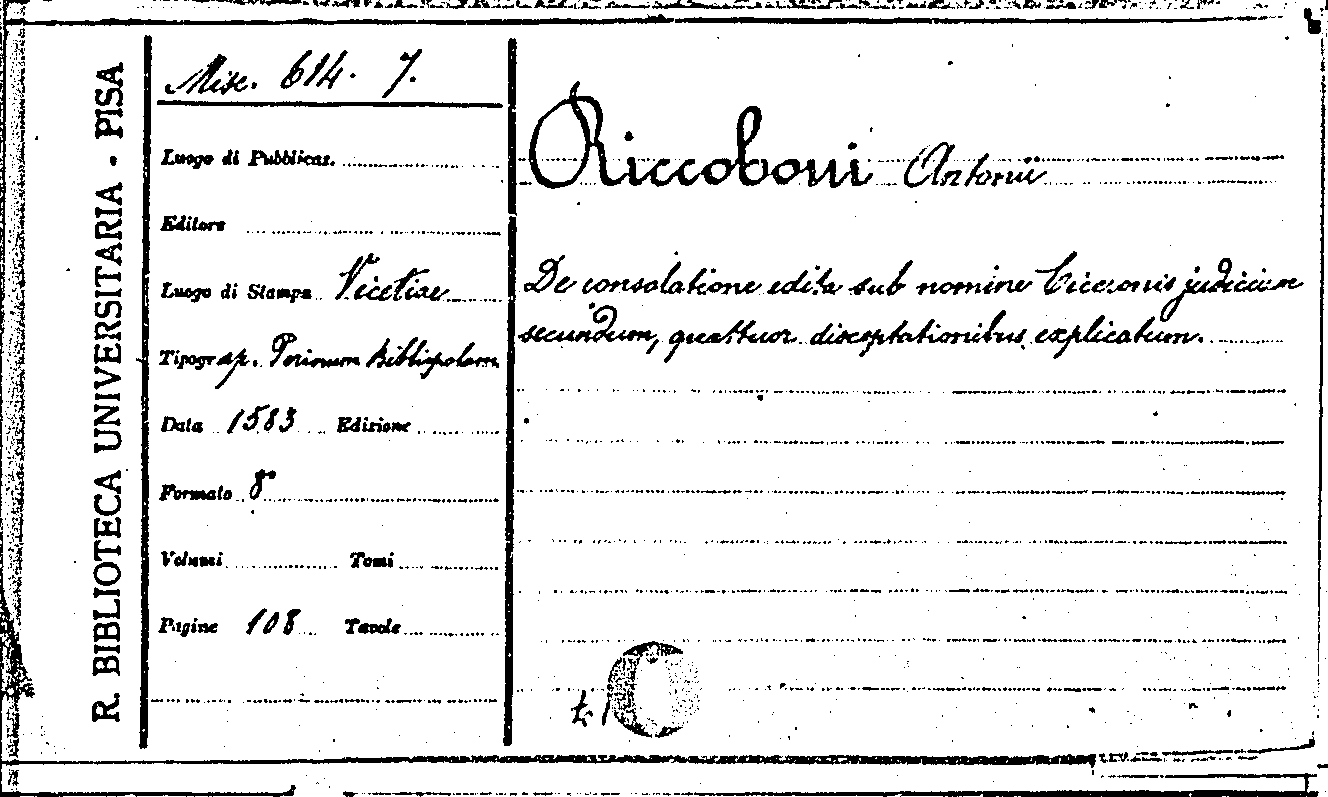 R. BIBLIOTECA UNIVERSITARIA - PISA
Misc. 614. 7.
Luogo di Pubblicaz.
Editore
Luogo di Stampa Vicetiae
Tipogr ap. Perinum Bibliopolam
Data 1583 Edizione
Formato 8°
Volumi Tomi
Pagine 108 Tavole
Riccoboni Antonii
De consolatione edita sub nomine Ciceronis judicium
secundum, quattuor disceptationibus explicatum.